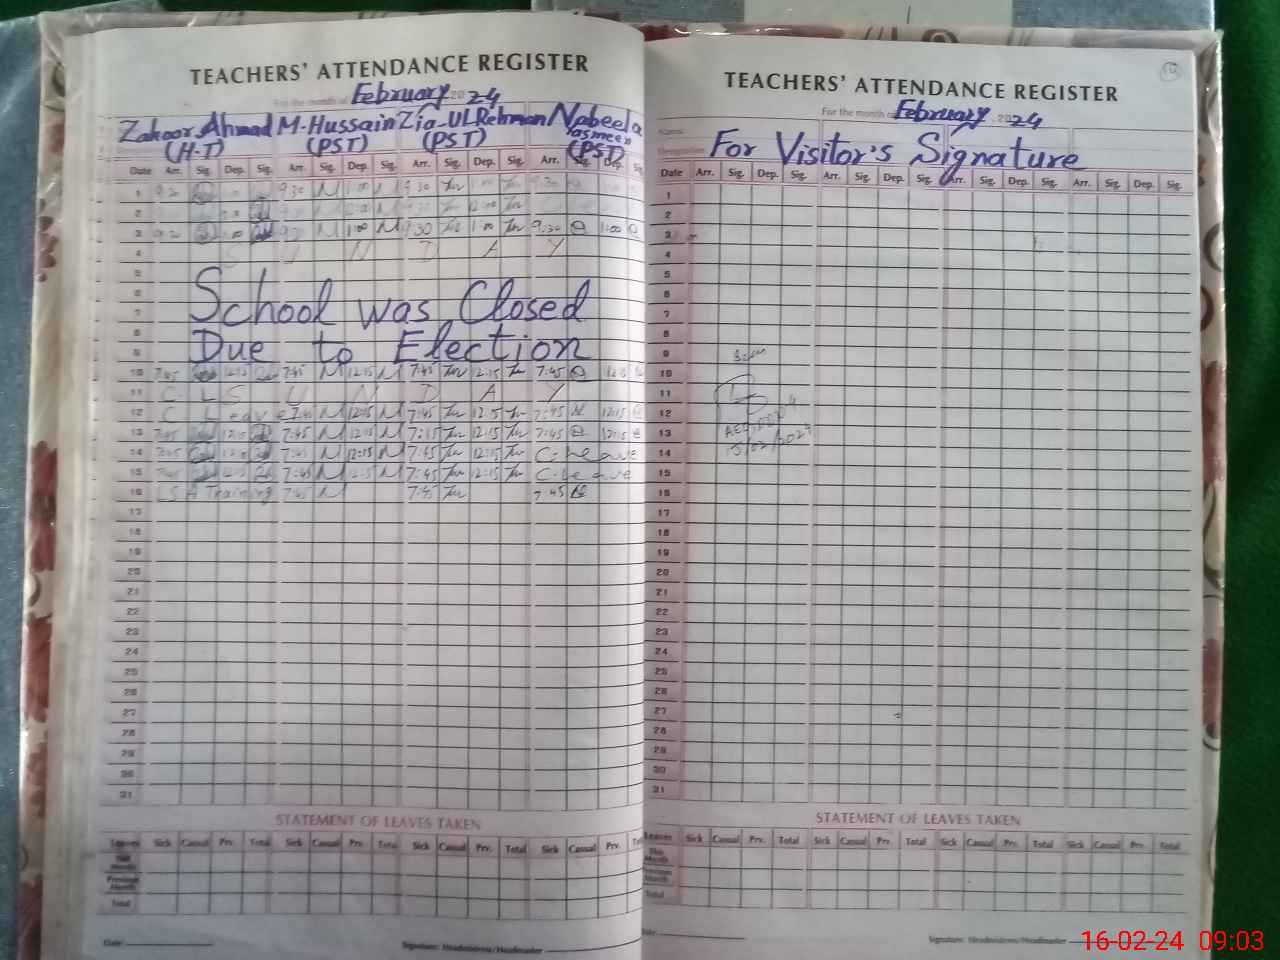 TEACHERS' ATTENDANCE REGISTER
For the month of February 2024
Zahoor Ahmad M. Hussain Zia-UL Rehman Nabeela Yasmeen
(H-T) (PST) (PST) (PST)
Date Arr. Sig. Dep. Sig. Arr. Sig. Dep. Sig. Arr. Sig. Dep. Sig. Arr. Sig. Dep. Sig.
1 9:30 M 1:00 M 9:30
2 12:00
3 9:30 1:00 M 1:00 M 9:30 1:00 9:30 1:00
4 S U N D A Y
5
6
7 School was Closed
8
9 Due to Election
10 7:45 12:15 7:45 M 12:15 M 7:45 12:15 7:45 12:15
11 S U N D A Y
12 C. Leave 7:45 M 12:15 M 7:45 12:15 7:45 12:15
13 7:45 12:15 7:45 M 12:15 M 7:15 12:15 7:45 12:15
14 7:45 12:15 7:45 M 12:15 M 7:45 12:15 C. Leave
15 7:45 12:15 7:45 M 12:15 M 7:45 12:15 C. Leave
16 LSA Training 7:45 M 7:45 7:45
17
18
19
20
21
22
23
24
25
26
27
28
29
30
31
STATEMENT OF LEAVES TAKEN
Leaves Sick Casual Prv. Total Sick Casual Prv. Total Sick Casual Prv. Total Sick Casual Prv.
This Month
Previous Month
Total
Date: Signature: Headmistress/Headmaster
TEACHERS' ATTENDANCE REGISTER
For the month of February 2024
Name:
Designation: For Visitor's Signature
Date Arr. Sig. Dep. Sig. Arr. Sig. Dep. Sig. Arr. Sig. Dep. Sig. Arr. Sig. Dep. Sig.
1
2
3
4
5
6
7
8
9
10
11
12
13
15/02/2024
14
15
16
17
18
19
20
21
22
23
24
25
26
27
28
29
30
31
STATEMENT OF LEAVES TAKEN
Leaves Sick Casual Prv. Total Sick Casual Prv. Total Sick Casual Prv. Total Sick Casual Prv. Total
This Month
Previous Month
Total
Date: Signature: Headmistress/Headmaster
16-02-24 09:03